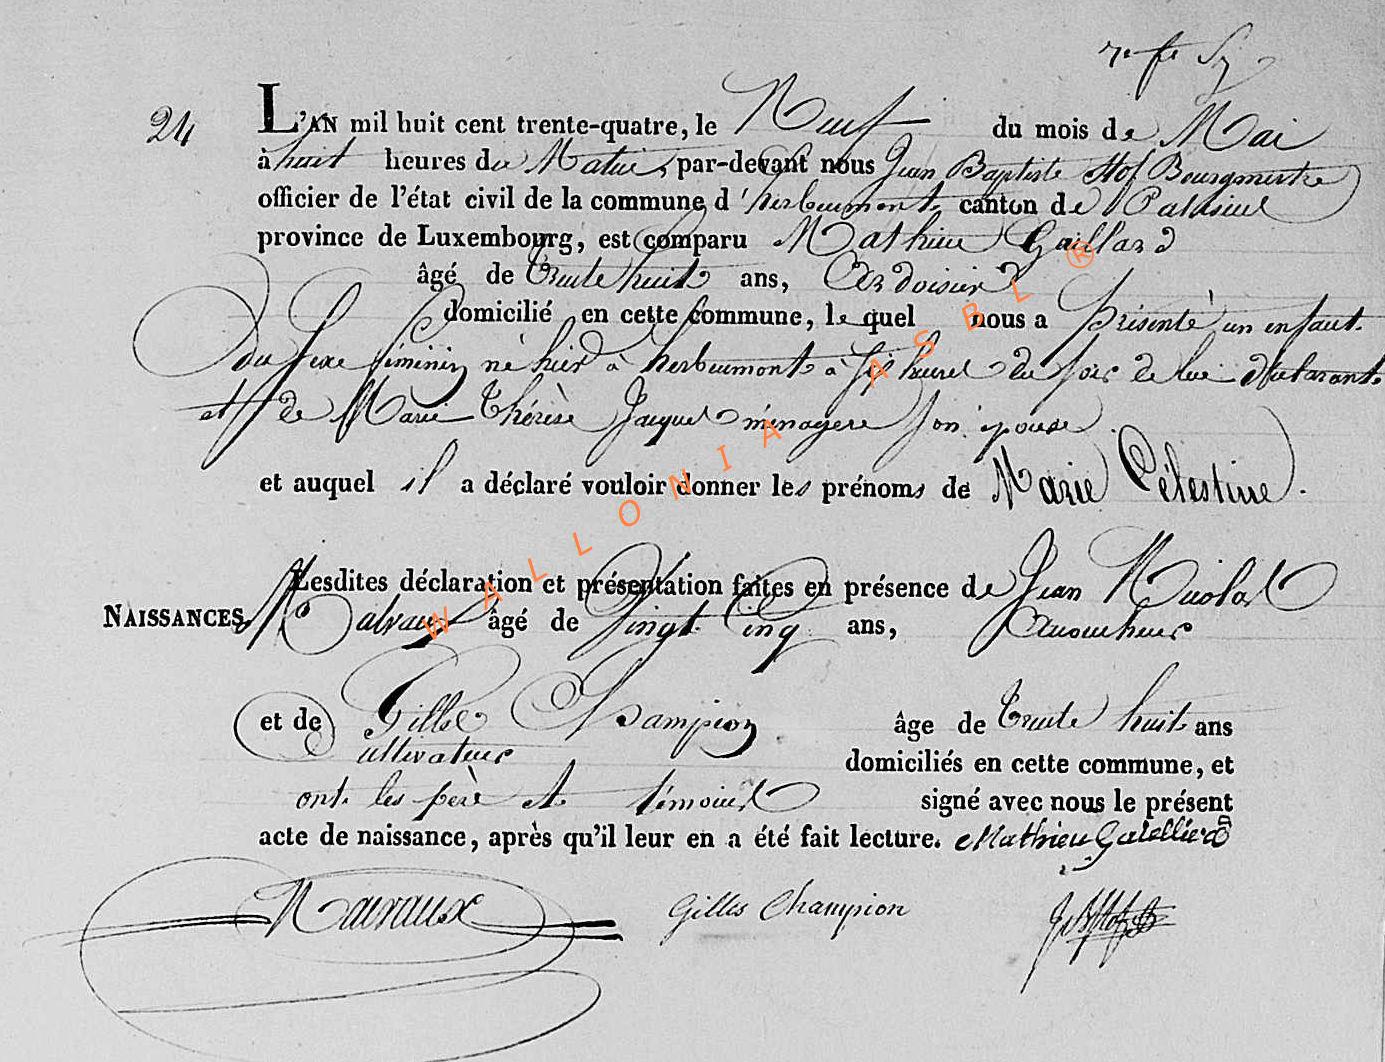 24
L'AN mil huit cent trente-quatre, le Neuf du mois de Mai
à huit heures du Matin, par-devant nous Jean Baptiste Hof Bourgmestre
officier de l'état civil de la commune d'herbeumont canton de Paliseul
province de Luxembourg, est comparu Mathieu Gaillard
âgé de trente huit ans, Ardoisier
domicilié en cette commune, lequel nous a présenté un enfant
du sexe féminin né hier à herbeumont à six heures du soir de lui déclarant
et de Marie Thérèse Jacques ménagere son épouse
et auquel il a déclaré vouloir donner les prénoms de Marie Célestine.
Lesdites déclaration et présentation faites en présence de Jean Nicolas
NAISSANCES. âgé de Vingt Cinq ans,
et de Gilles Champion âge de trente huit ans
cultivateur domiciliés en cette commune, et
ont les père et témoins signé avec nous le présent
acte de naissance, après qu'il leur en a été fait lecture. Mathieu
Gilles Champion
WALLONIA ASBL ®